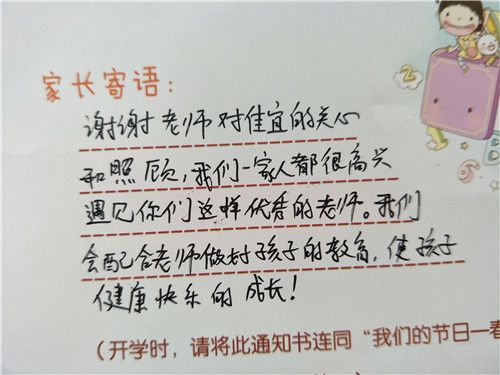 家长寄语:
谢谢老师对佳宜的关心
和照顾,我们一家人都很高兴
遇见你们这样优秀的老师。我们
会配合老师做好孩子的教育,使孩子
健康快乐的成长!
(开学时,请将此通知书连同“我们的节日—春